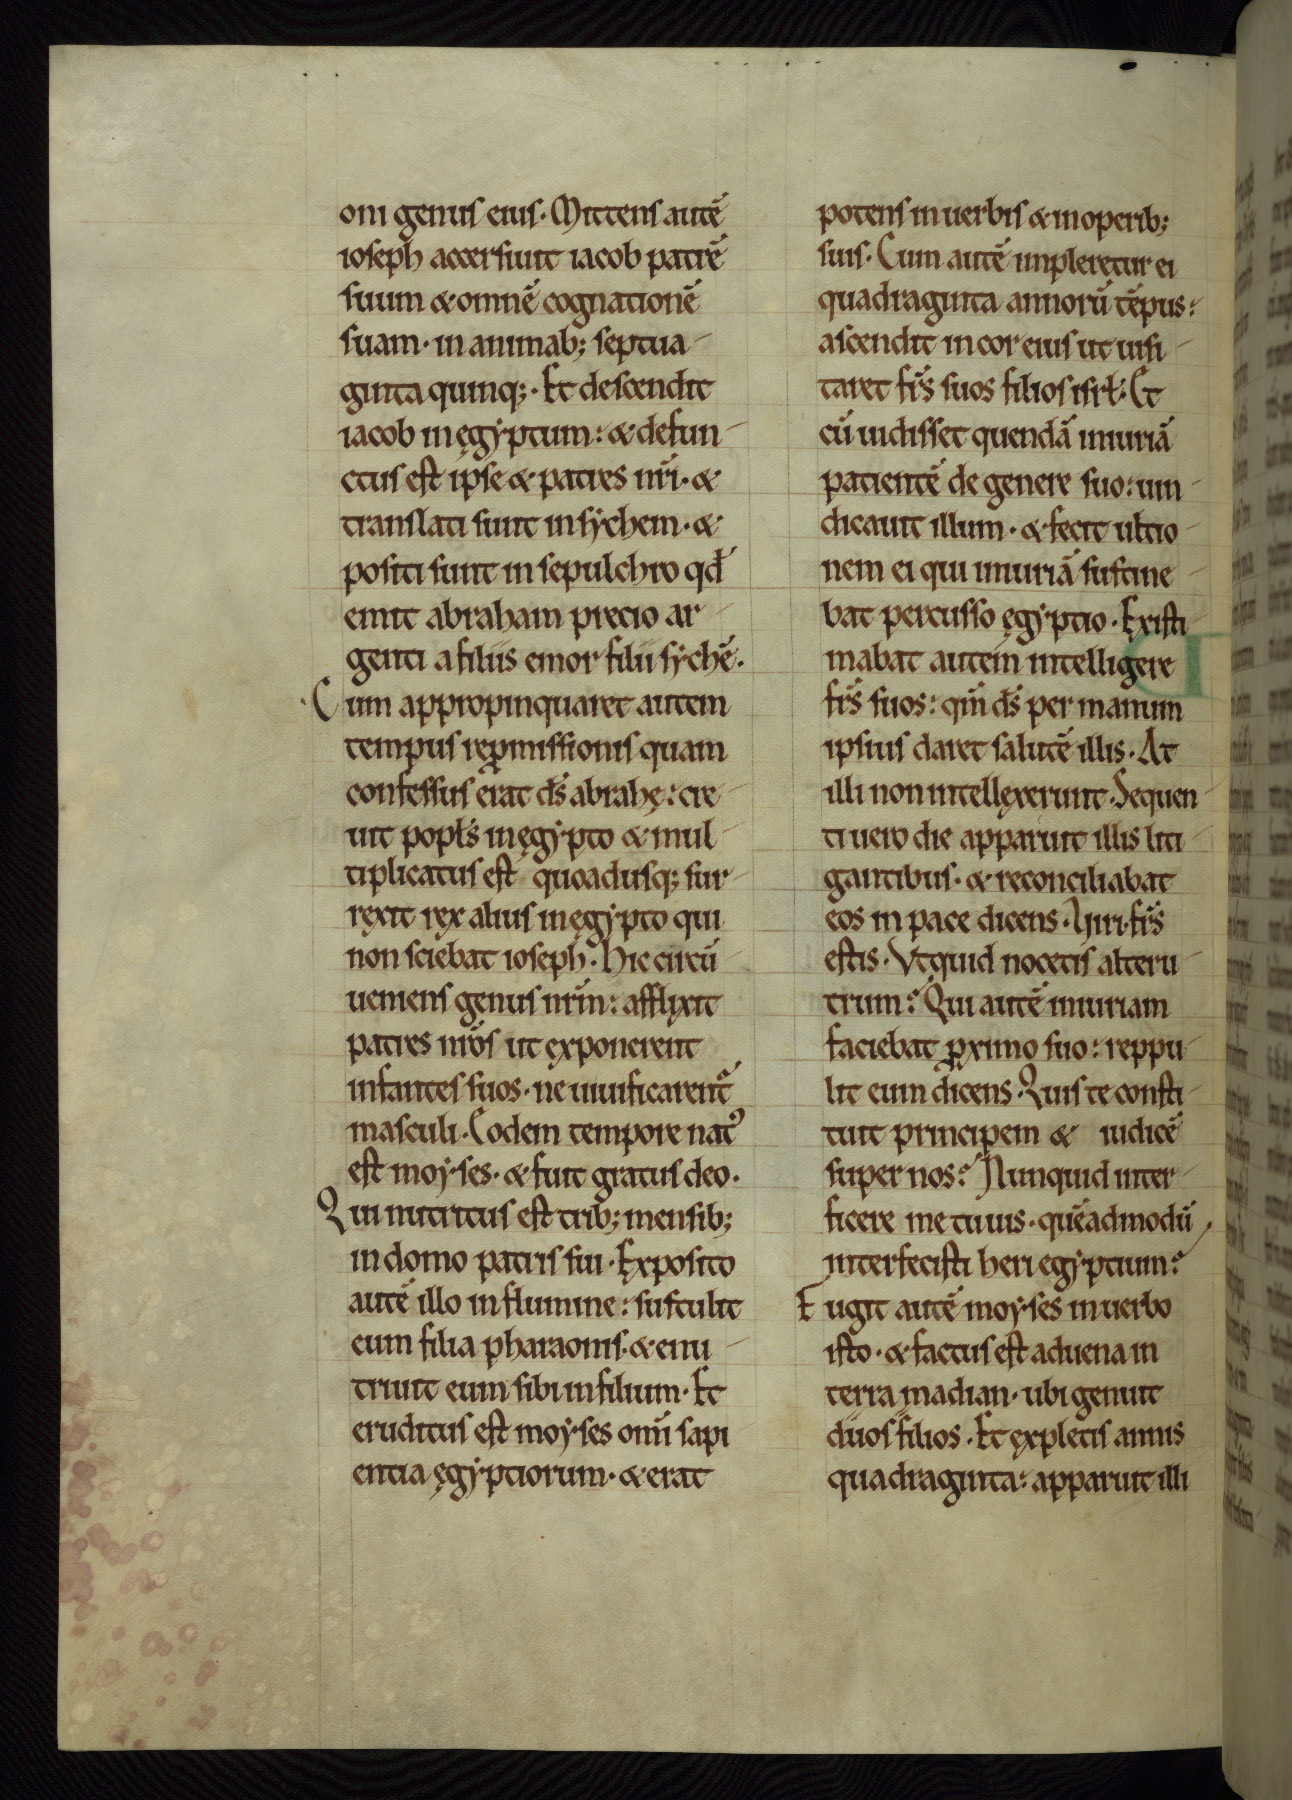 oni genus eius. Mittens autē
ioseph accersiuit iacob patrē
suum & omnē cognationē
suam. in animab; septua-
ginta quinq;. Et descendit
iacob in ęgyptum: & defun-
ctus est ipse & patres nr̄i. &
translati sunt in sychem. &
positi sunt in sepulchro qđ
emit abraham precio ar-
genti a filiis emor filii sychē.
Cum appropinquaret autem
tempus repmissionis quam
confessus erat ds̄ abrahę: cre-
uit popłs in ęgypto & mul-
tiplicatus est quoadusq; sur-
rexit rex alius in ęgypto qui
non sciebat ioseph. Hic circū-
ueniens genus nr̄m: afflixit
patres nr̄os ut exponerent
infantes suos. ne uiuificarent᷑
masculi. Eodem tempore natꝰ
est moyses. & fuit gratus deo.
Qui nutritus est trib; mensib;
in domo patris sui. Exposito
autē illo in flumine: sustulit
eum filia pharaonis. & enu-
triuit eum sibi in filium. Et
eruditus est moyses om̄i sapi
entia ęgyptiorum. & erat
potens in uerbis & in operib;
suis. Cum autē impleretur ei
quadraginta annorū tēpus:
ascendit in cor eius ut uisi-
taret fr̄s suos filios isrł. Et
cū uidisset quendā iniuriā
patientē de genere suo: uin-
dicauit illum. & fecit ultio-
nem ei qui iniuriā sustine-
bat percusso ęgyptio. Existi-
mabat autem intelligere
fr̄s suos: qm̄ ds̄ per manum
ipsius daret salutē illis. At
illi non intellexerunt. Sequen-
ti uero die apparuit illis liti-
gantibus. & reconciliabat
eos in pace dicens. Uiri. fr̄s
estis. Vtquid nocetis alteru-
trum? Qui autē iniuriam
faciebat ꝓximo suo: reppu-
lit eum dicens. Quis te consti-
tuit principem & iudicē
super nos? Nunquid inter-
ficere me tu uis. quēadmodū
interfecisti heri egyptium?
Fugit autē moyses in uerbo
isto. & factus est aduena in
terra madian. ubi genuit
duos filios. Et expletis annis
quadraginta: apparuit illi